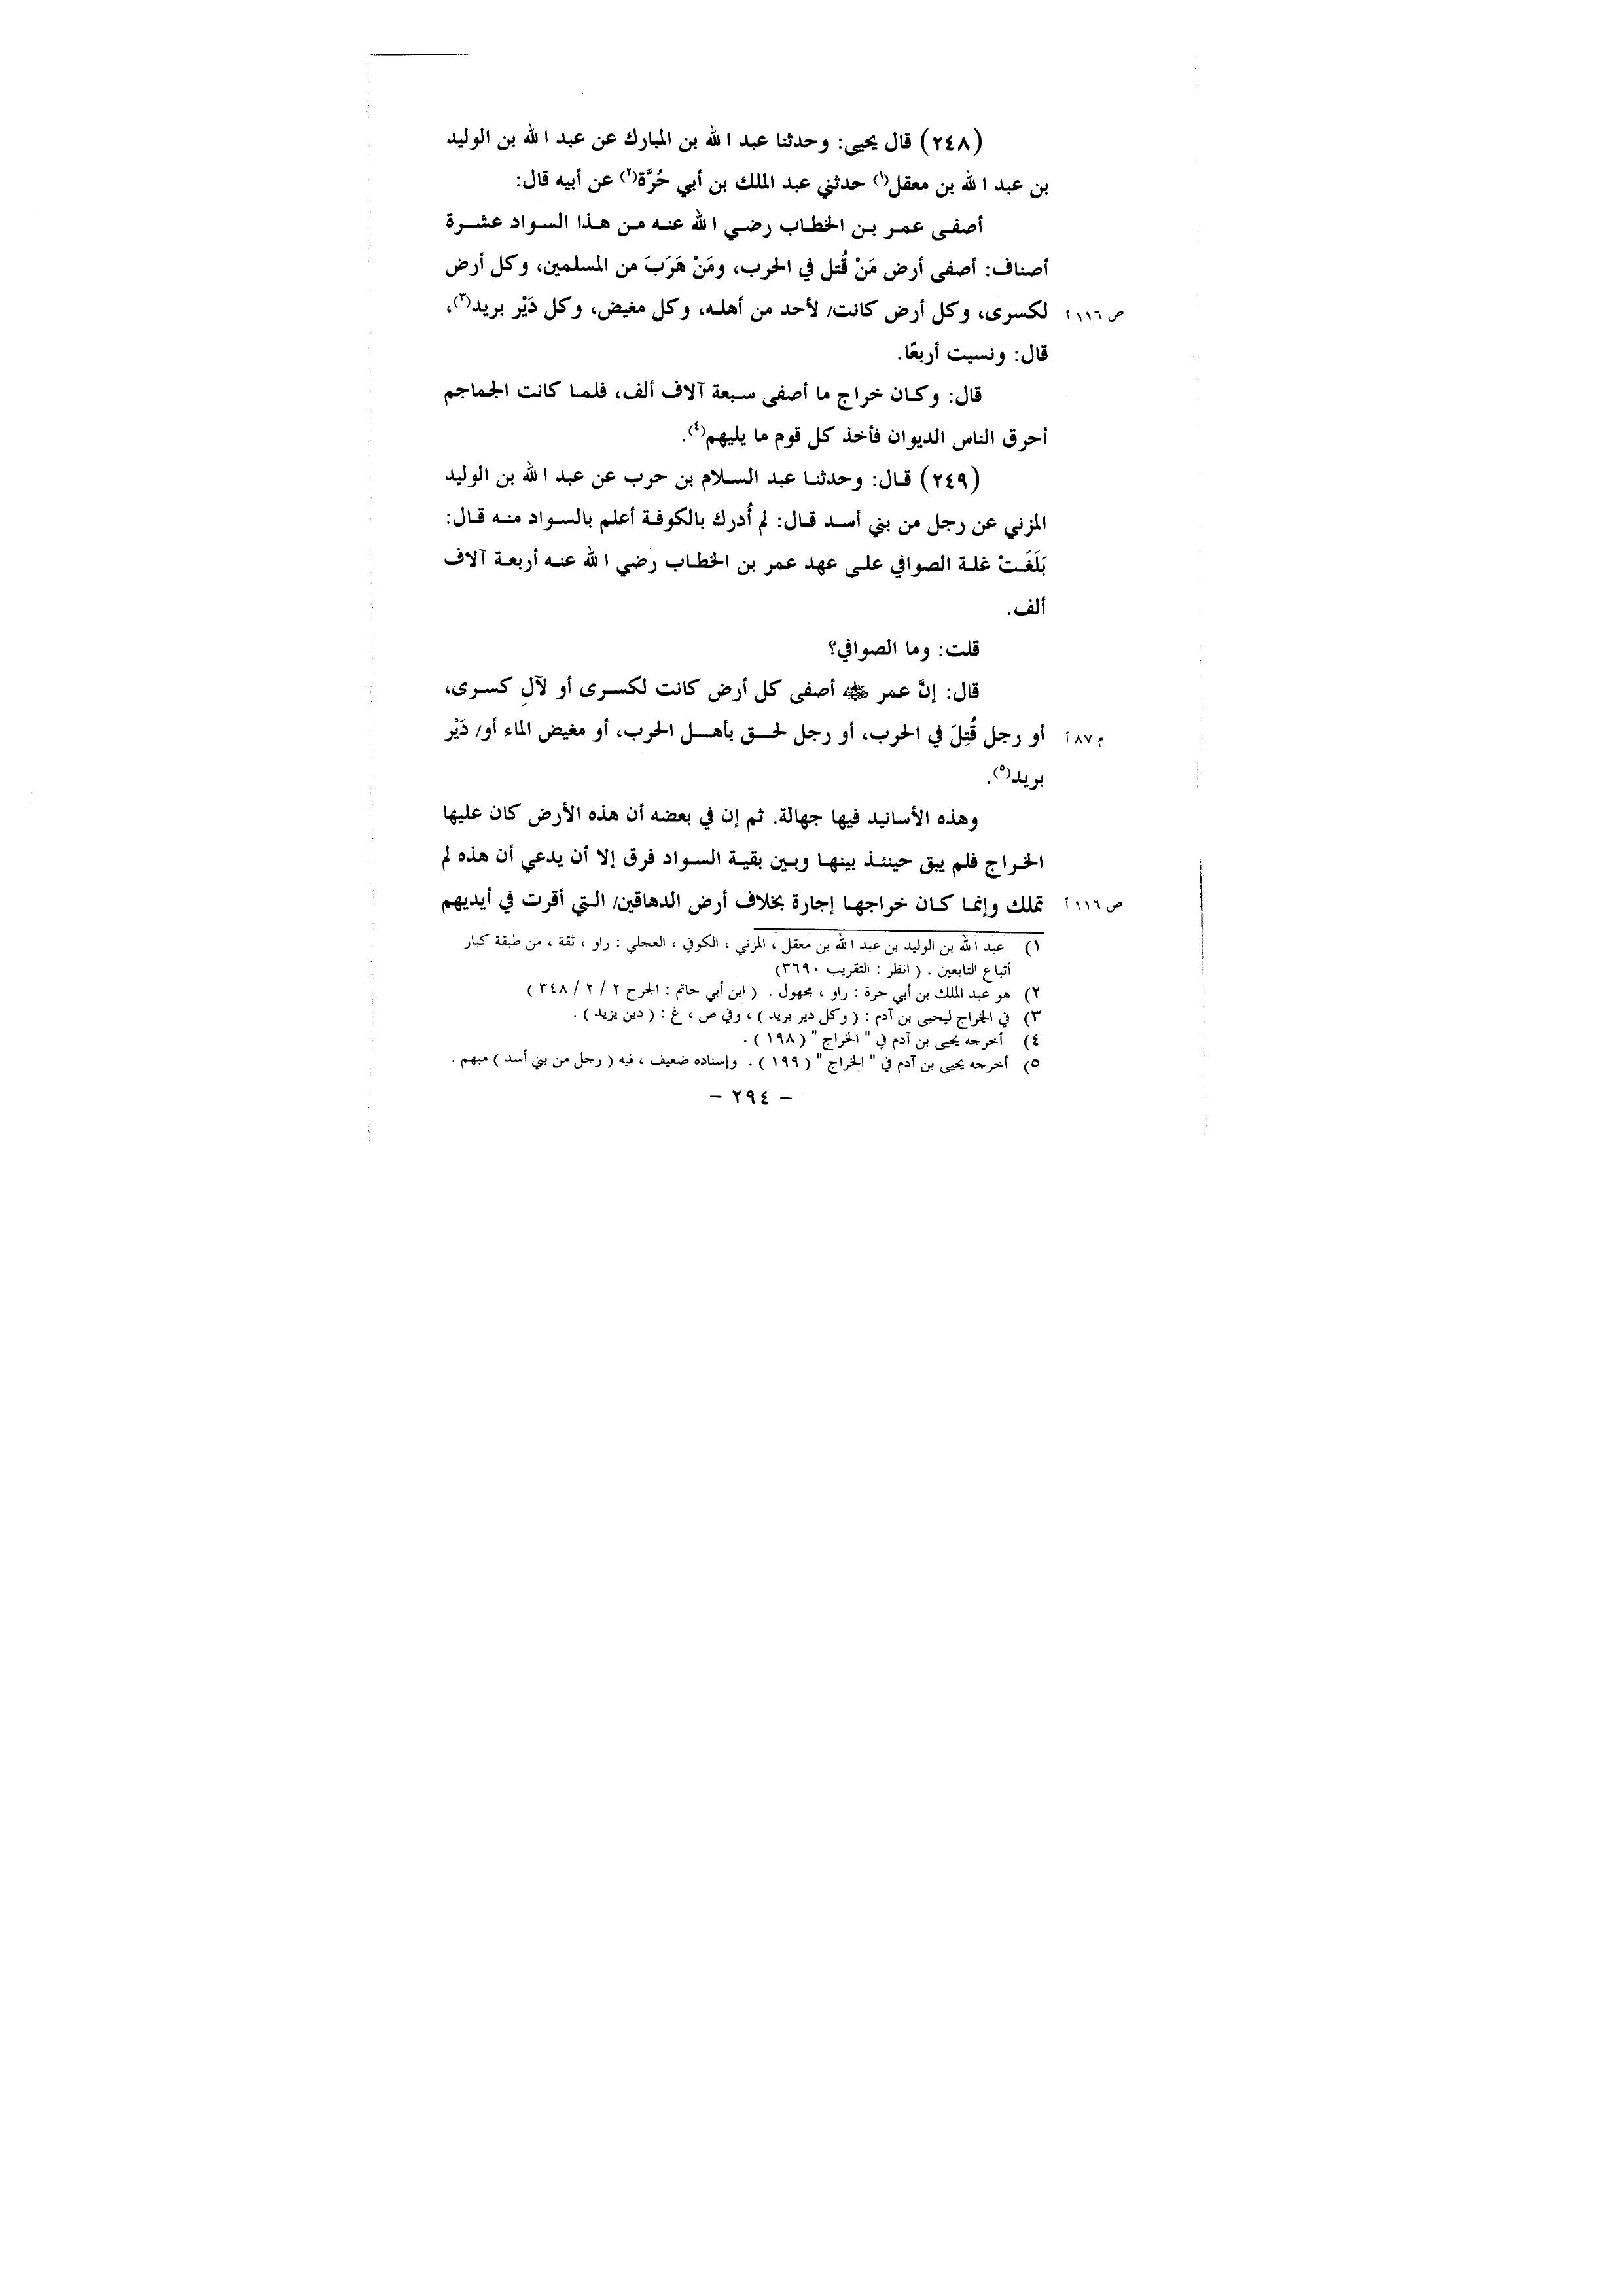 (٢٤٨) قال يحيى: وحدثنا عبد الله بن المبارك عن عبد الله بن الوليد
بن عبد الله بن معقل(١) حدثني عبد الملك بن أبي حُرَّة(٢) عن أبيه قال:
أصفى عمر بن الخطاب رضي الله عنه من هذا السواد عشرة
أصناف: أصفى أرض مَنْ قُتل في الحرب، ومَنْ هَرَبَ من المسلمين، وكل أرض
لكسرى، وكل أرض كانت/ لأحد من أهله، وكل مغيض، وكل دَيْر بريد(٣)،
ص ١١٦ أ
قال: ونسيت أربعًا.
قال: وكان خراج ما أصفى سبعة آلاف ألف، فلما كانت الجماجم
أحرق الناس الديوان فأخذ كل قوم ما يليهم(٤).
(٢٤٩) قال: وحدثنا عبد السلام بن حرب عن عبد الله بن الوليد
المزني عن رجل من بني أسد قال: لم أُدرك بالكوفة أعلم بالسواد منه قال:
بَلَغَتْ غلة الصوافي على عهد عمر بن الخطاب رضي الله عنه أربعة آلاف
ألف.
قلت: وما الصوافي؟
قال: إنَّ عمر ﷺ أصفى كل أرض كانت لكسرى أو لآلِ كسرى،
أو رجل قُتِلَ في الحرب، أو رجل لحق بأهل الحرب، أو مغيض الماء أو/ دَيْر
م ٨٧ أ
بريد(٥).
وهذه الأسانيد فيها جهالة. ثم إن في بعضه أن هذه الأرض كان عليها
الخراج فلم يبق حينئذ بينها وبين بقية السواد فرق إلا أن يدعي أن هذه لم
تملك وإنما كان خراجها إجارة بخلاف أرض الدهاقين/ التي أقرت في أيديهم
ص ١١٦ أ
١) عبد الله بن الوليد بن عبد الله بن معقل ، المزني ، الكوفي ، العجلي : راو ، ثقة ، من طبقة كبار
أتباع التابعين . ( انظر : التقريب ٣٦٩٠)
٢) هو عبد الملك بن أبي حرة : راو ، مجهول . ( ابن أبي حاتم : الجرح ٢ / ٢ / ٣٤٨ )
٣) في الخراج ليحيى بن آدم : ( وكل دير بريد ) ، وفي ص ، غ : ( دين يزيد ) .
٤) أخرجه يحيى بن آدم في " الخراج " ( ١٩٨ ) .
٥) أخرجه يحيى بن آدم في " الخراج " ( ١٩٩ ) . وإسناده ضعيف ، فيه ( رجل من بني أسد ) مبهم .
- ٢٩٤ -